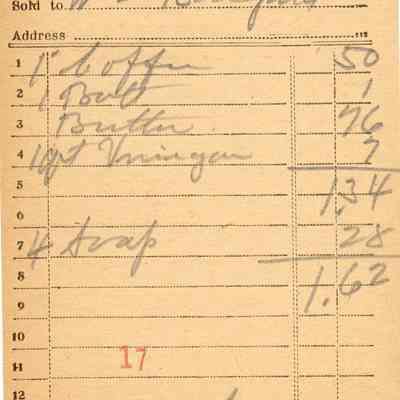 Sold to
Address
1 1 Coffee 50
2 1 Bolt 1
3 Butter 76
4 1 qt Vinegar 7
5 1.34
6
7 4 Soap 28
8 1.62
9
10
11 17
12